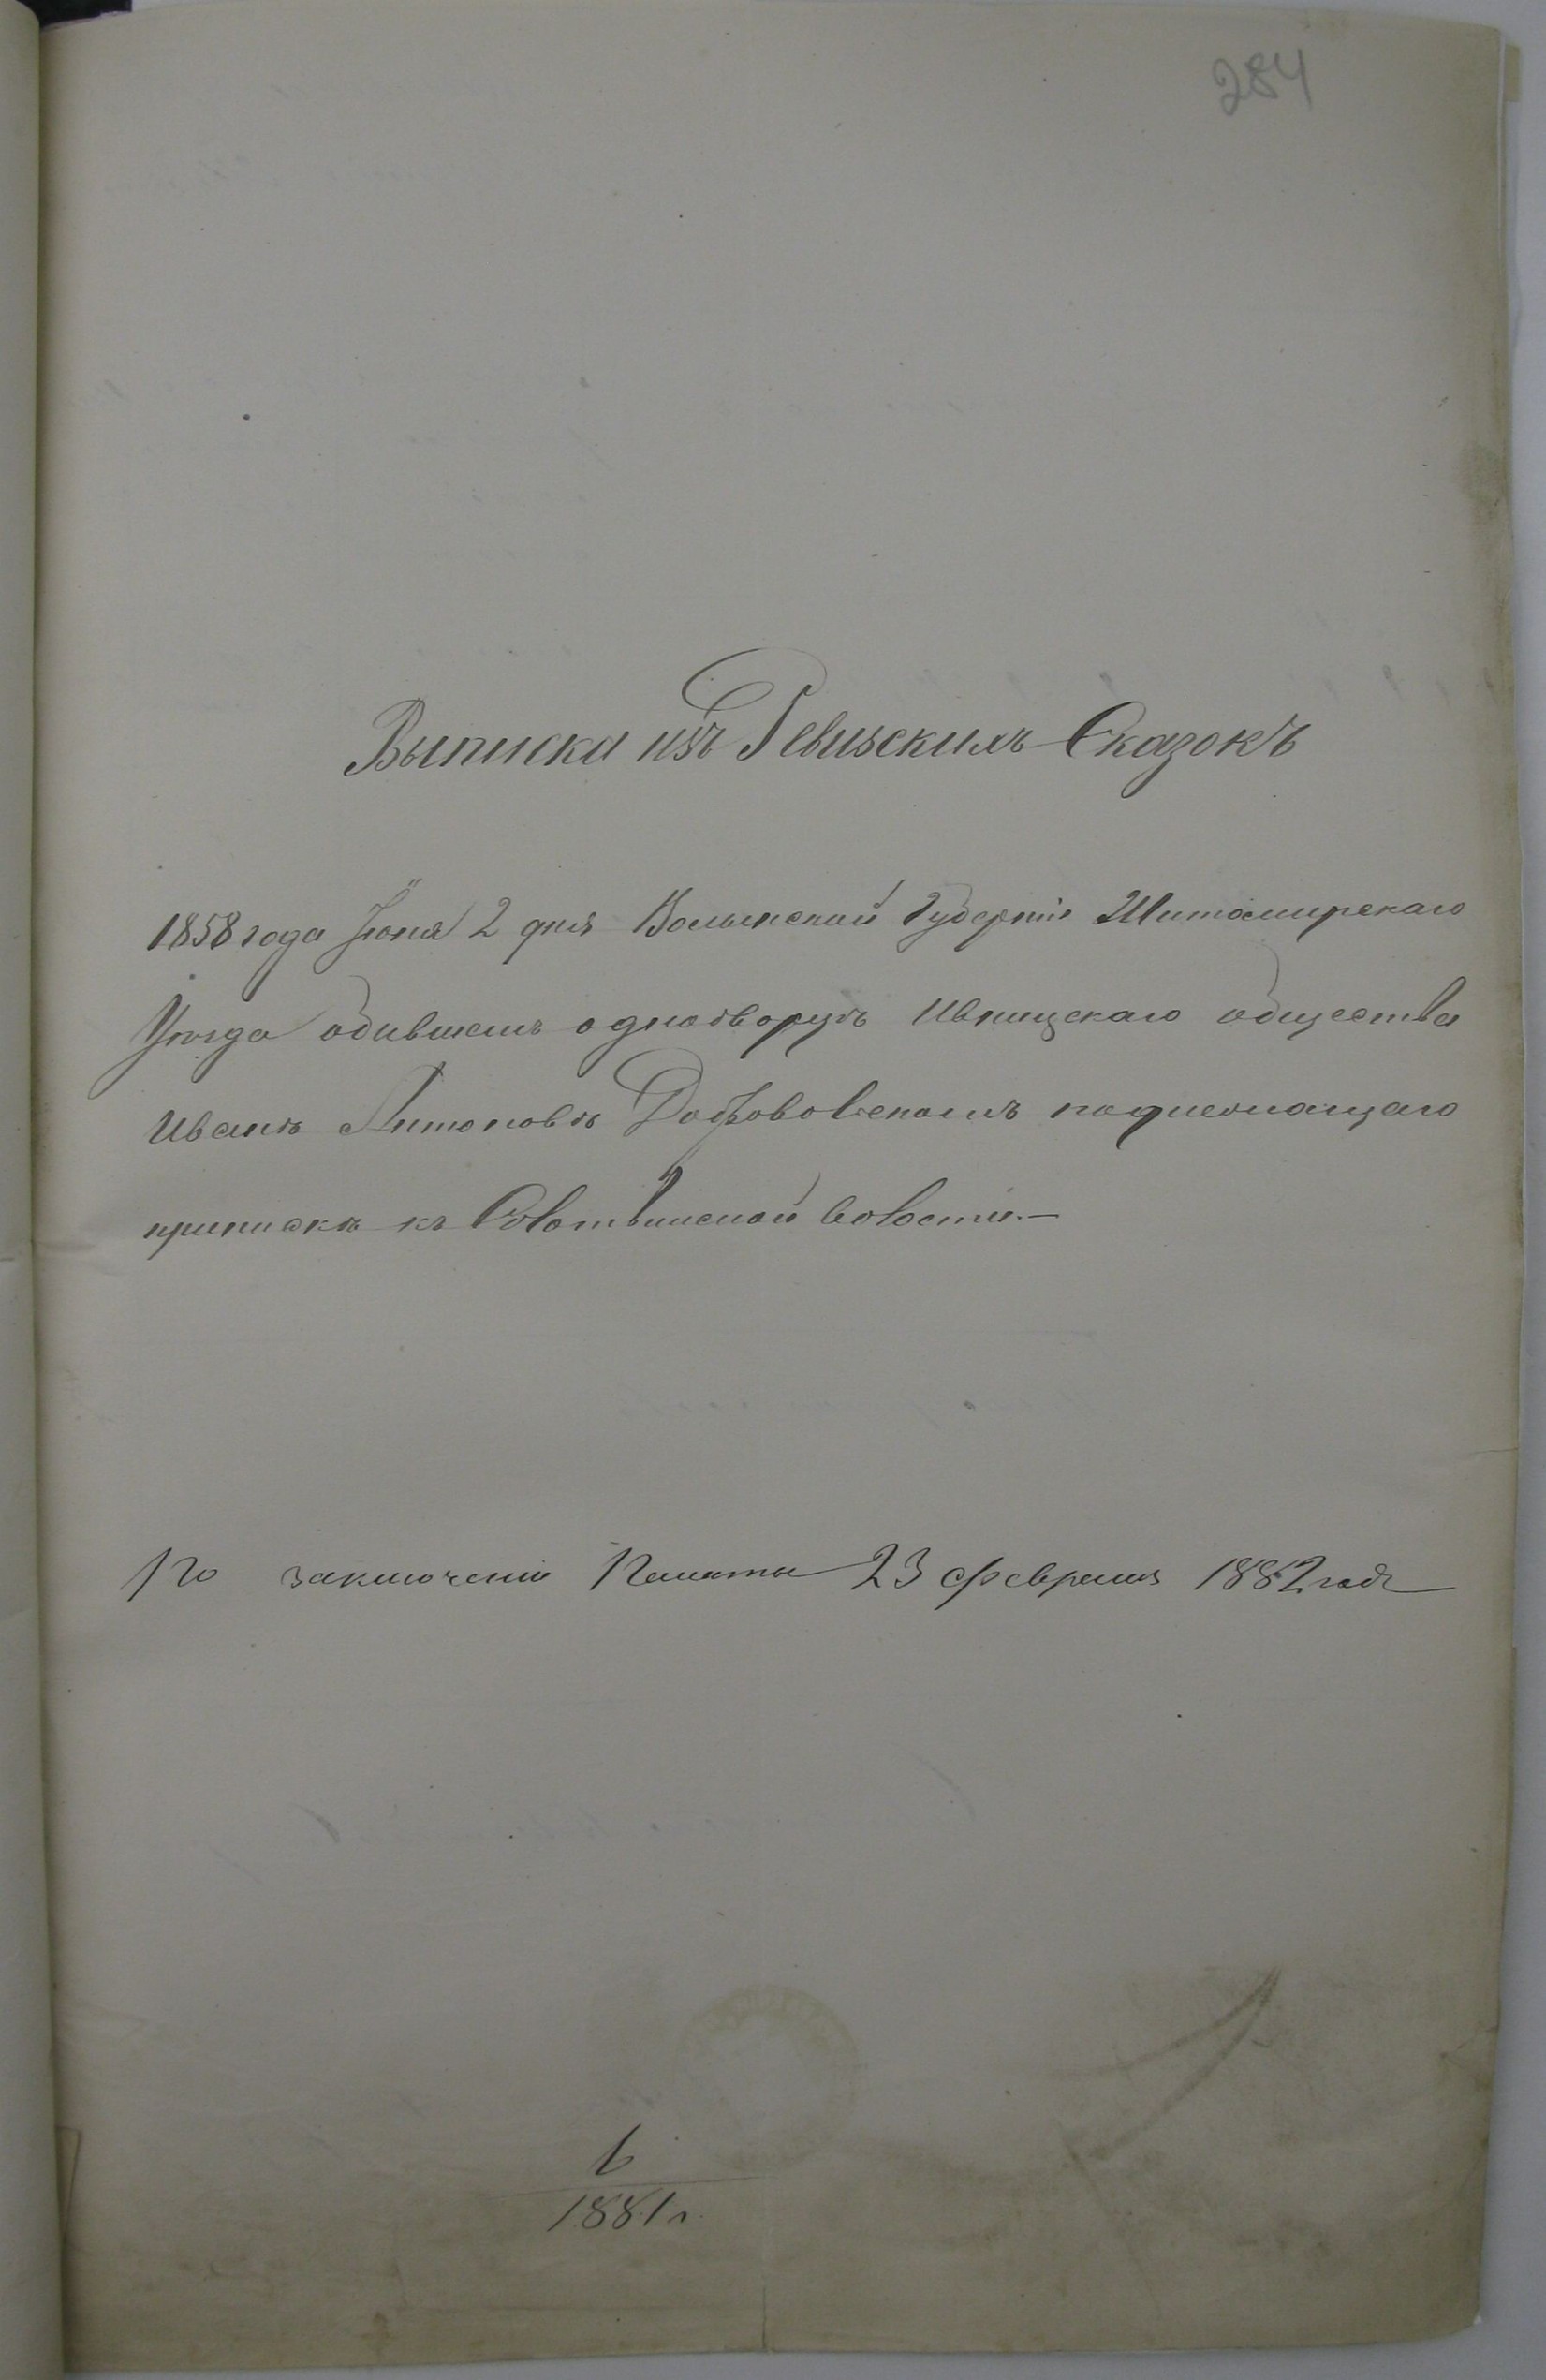 284
Выписка изъ Ревизскихъ Сказокъ
1858 года Іюня 2 дня Волынский Губерніи Житомирскаго
Уѣзда обывшемъ однодворцѣ Ивницскаго общества
Иванѣ Антоновѣ Добровольскомъ подлежащаго
припискѣ къ Солотвинской волости.—
По заключенію Палаты 23 февраля 1882 года
6
1881 г.